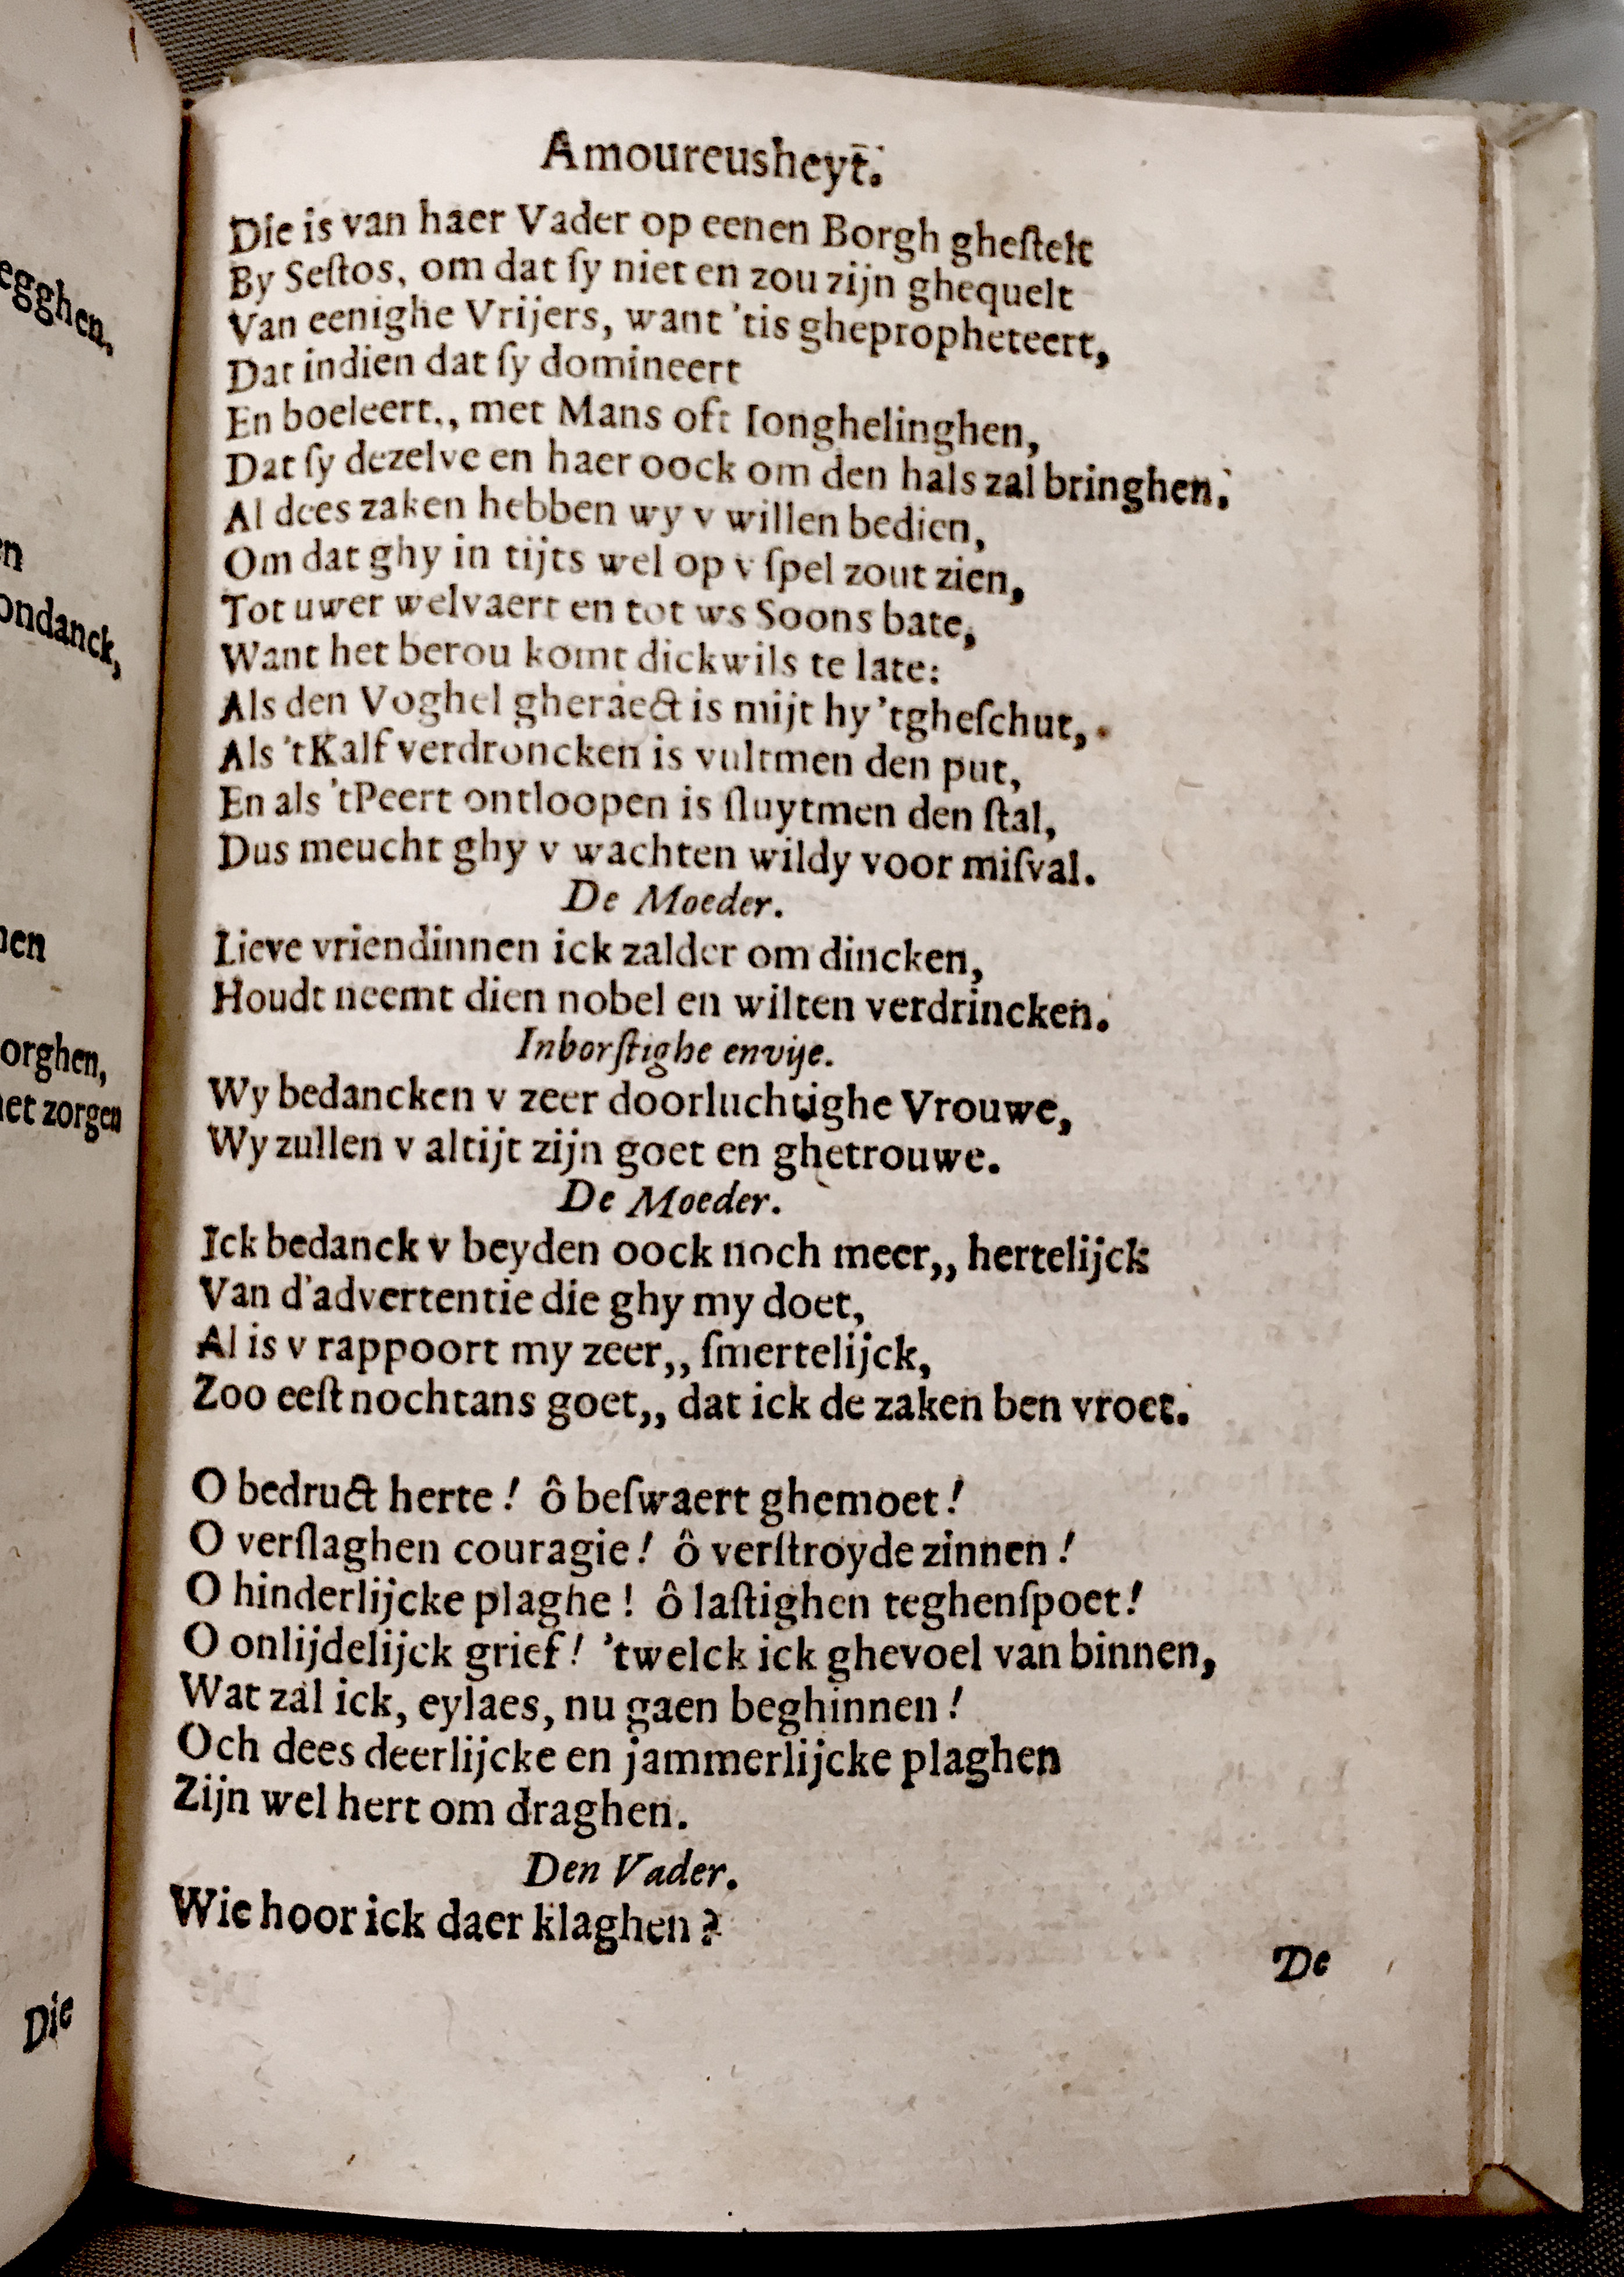 Amoureusheyt.
Die is van haer Vader op eenen Borgh gheſtelt
By Seſtos, om dat ſy niet en zou zijn ghequelt
Van eenighe Vrijers, want 'tis ghepropheteert,
Dat indien dat ſy domineert
En boeleert,, met Mans oft Ionghelinghen,
Dat ſy dezelve en haer oock om den hals zal bringhen.
Al dees zaken hebben wy v willen bedien,
Om dat ghy in tijts wel op v ſpel zout zien,
Tot uwer welvaert en tot ws Soons bate,
Want het berou komt dickwils te late:
Als den Voghel gheraect is mijt hy 'tgheſchut,
Als 'tKalf verdroncken is vultmen den put,
En als 'tPeert ontloopen is ſluytmen den ſtal,
Dus meucht ghy v wachten wildy voor miſval.
De Moeder.
Lieve vriendinnen ick zalder om dincken,
Houdt neemt dien nobel en wilten verdrincken.
Inborſtighe envije.
Wy bedancken v zeer doorluchtighe Vrouwe,
Wy zullen v altijt zijn goet en ghetrouwe.
De Moeder.
Ick bedanck v beyden oock noch meer,, hertelijck
Van d'advertentie die ghy my doet,
Al is v rappoort my zeer,, ſmertelijck,
Zoo eeſt nochtans goet,, dat ick de zaken ben vroet.
O bedruct herte! ô beſwaert ghemoet!
O verſlaghen couragie! ô verſtroyde zinnen!
O hinderlijcke plaghe! ô laſtighen teghenſpoet!
O onlijdelijck grief! 'twelck ick ghevoel van binnen,
Wat zal ick, eylaes, nu gaen beghinnen!
Och dees deerlijcke en jammerlijcke plaghen
Zijn wel hert om draghen.
Den Vader.
Wie hoor ick daer klaghen?
De
egghen.
en
ondanck,
nen
orghen,
net zorgen
Die